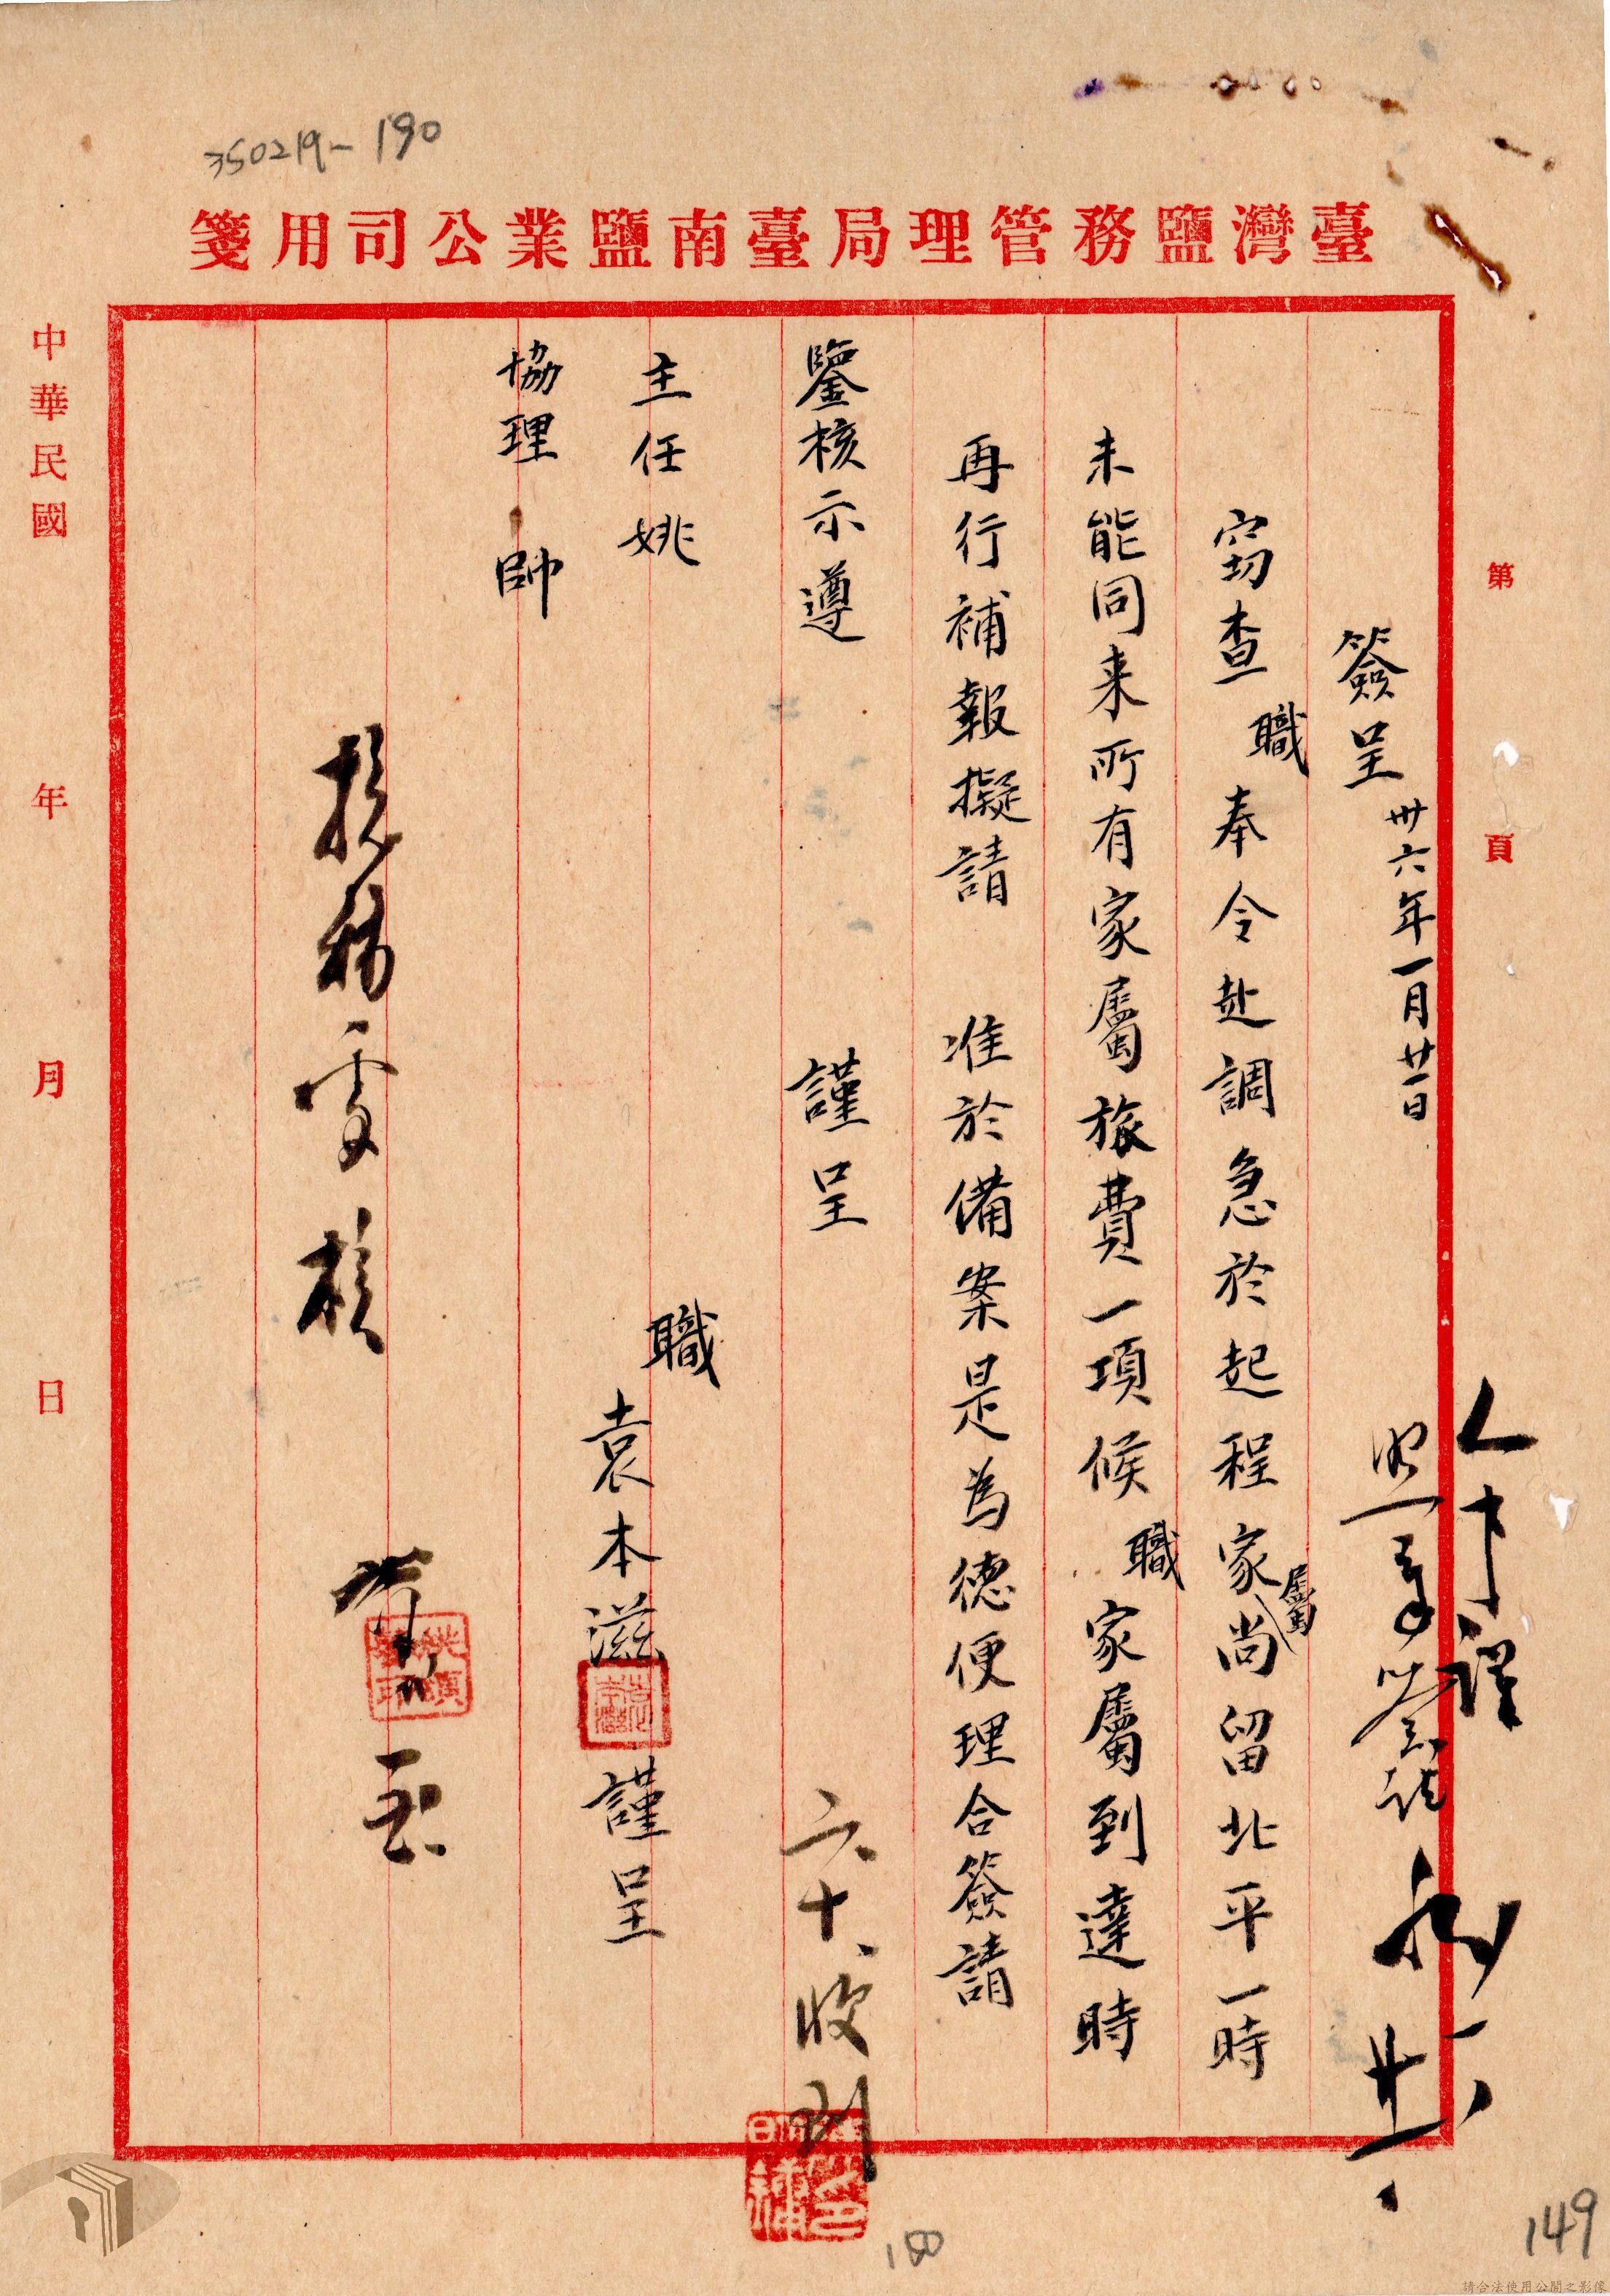 350219-190
臺灣鹽務管理局臺南鹽業公司用箋
第 頁
簽呈 卅六年一月廿一日
窃查職奉令赴調急於起程家屬尚留北平一時
未能同来所有家屬旅費一項候職家屬到達時
再行補報擬請 准於備案是為德便理合簽請
鑒核示遵 謹呈
主任姚
協理帥
職袁本滋謹呈
人事課
六、十、收
中華民國 年 月 日
150
149
請合法使用公開之影像